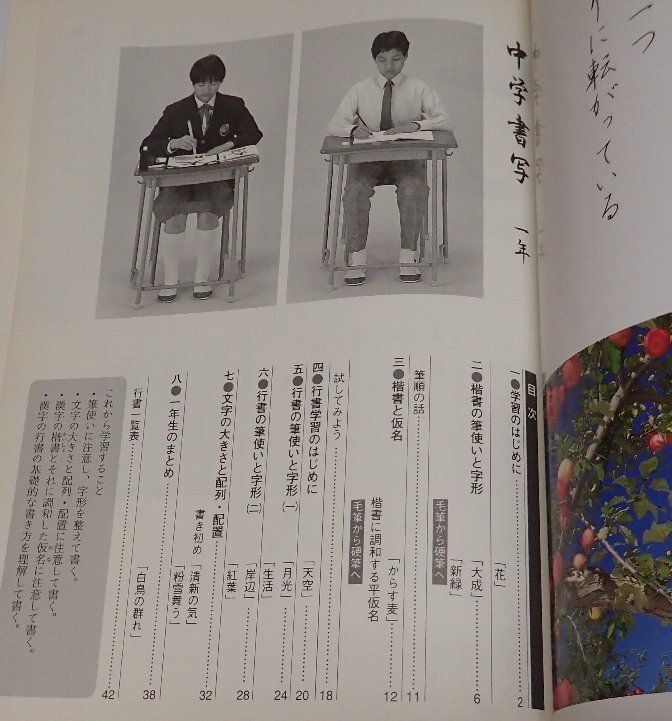 つ
りに転がっている
中学書写 一年
目次
一●学習のはじめに 2
「花」
二●楷書の筆使いと字形 6
「大成」
「新緑」
毛筆から硬筆へ
筆順の話 11
三●楷書と仮名 12
「からす麦」
楷書に調和する平仮名
毛筆から硬筆へ
試してみよう 18
四●行書学習のはじめに 20
「天空」
五●行書の筆使いと字形(一) 24
「月光」
「生活」
六●行書の筆使いと字形(二) 28
「岸辺」
「紅葉」
七●文字の大きさと配列・配置 32
書き初め「清新の気」
「粉雪舞う」
八●一年生のまとめ 38
「白鳥の群れ」
行書一覧表 42
これから学習すること
・筆使いに注意し、字形を整えて書く。
・文字の大きさと配列・配置に注意して書く。
・漢字の楷書とそれに調和した仮名に注意して書く。
・漢字の行書の基礎的な書き方を理解して書く。